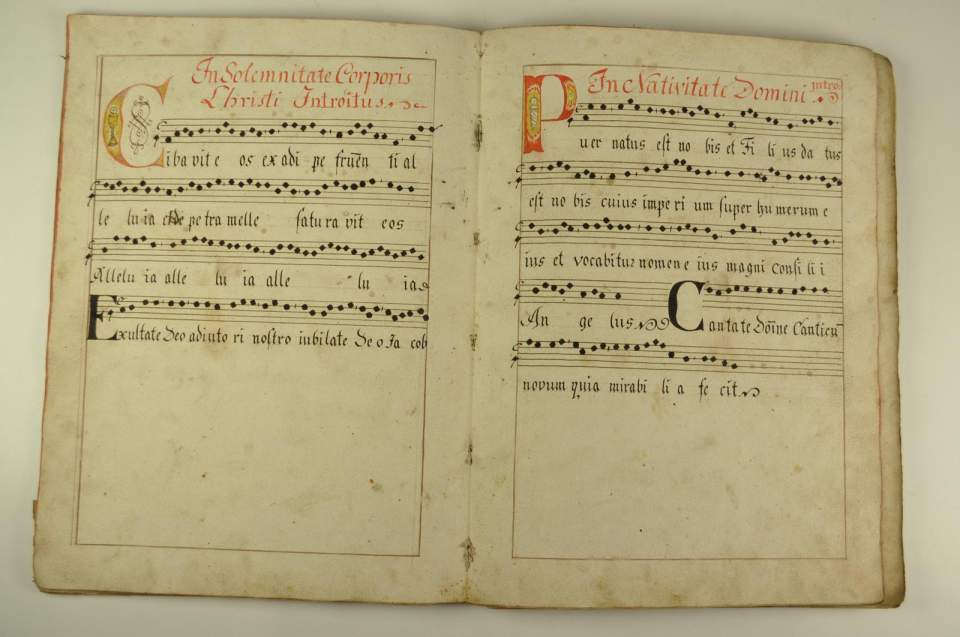 In Solemnitate Corporis
Christi Introitus
Cibavit e os ex adi pe fruen ti al
le lu ia et de petra melle satura vit eos
Allelu ia alle lu ia alle lu ia
Exultate Deo adiuto ri nostro iubilate De o Ja cob
In Nativitate Domini Intro:
Puer natus est no bis et Fi li us da tus
est no bis cuius impe ri um super hu merum e
ius et vocabitur nomen e ius magni consi li i
An ge lus Cantate Dōine Canticū
novum quia mirabi li a fe cit